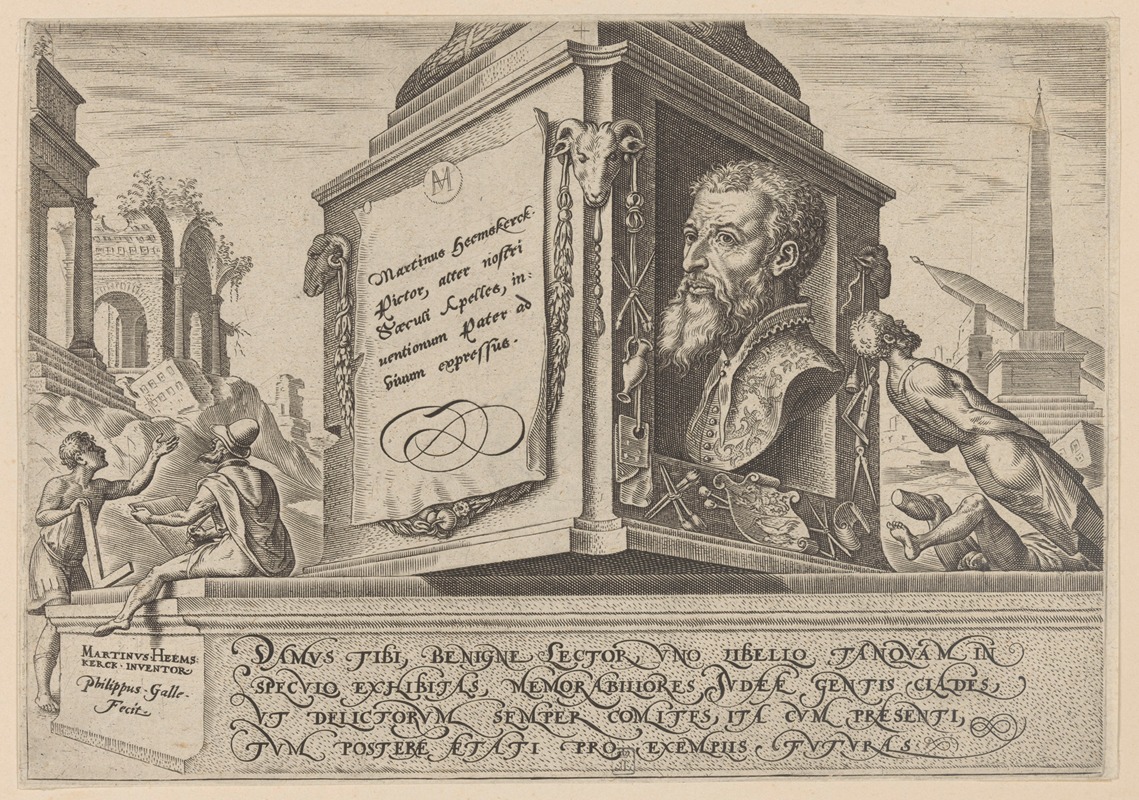 AH
Martinus Heemskerck.
Pictor, alter nostri
Sæculi Apelles, in:
uentionum Pater ad
viuum expressus.
MARTINVS·HEEMS:
KERCK·INVENTOR
Philippus·Galle·
Fecit
DAMVS TIBI, BENIGNE LECTOR, VNO LIBELLO TANQVÁM IN
SPECVLO EXHIBITAS, MEMORABILIORES IVDEÆ GENTIS CLADES,
VT DELICTORVM SEMPER COMITES, ITA CVM PRÆSENTI,
TVM POSTERÆ ÆTATI PRO EXEMPLIS FVTVRAS·